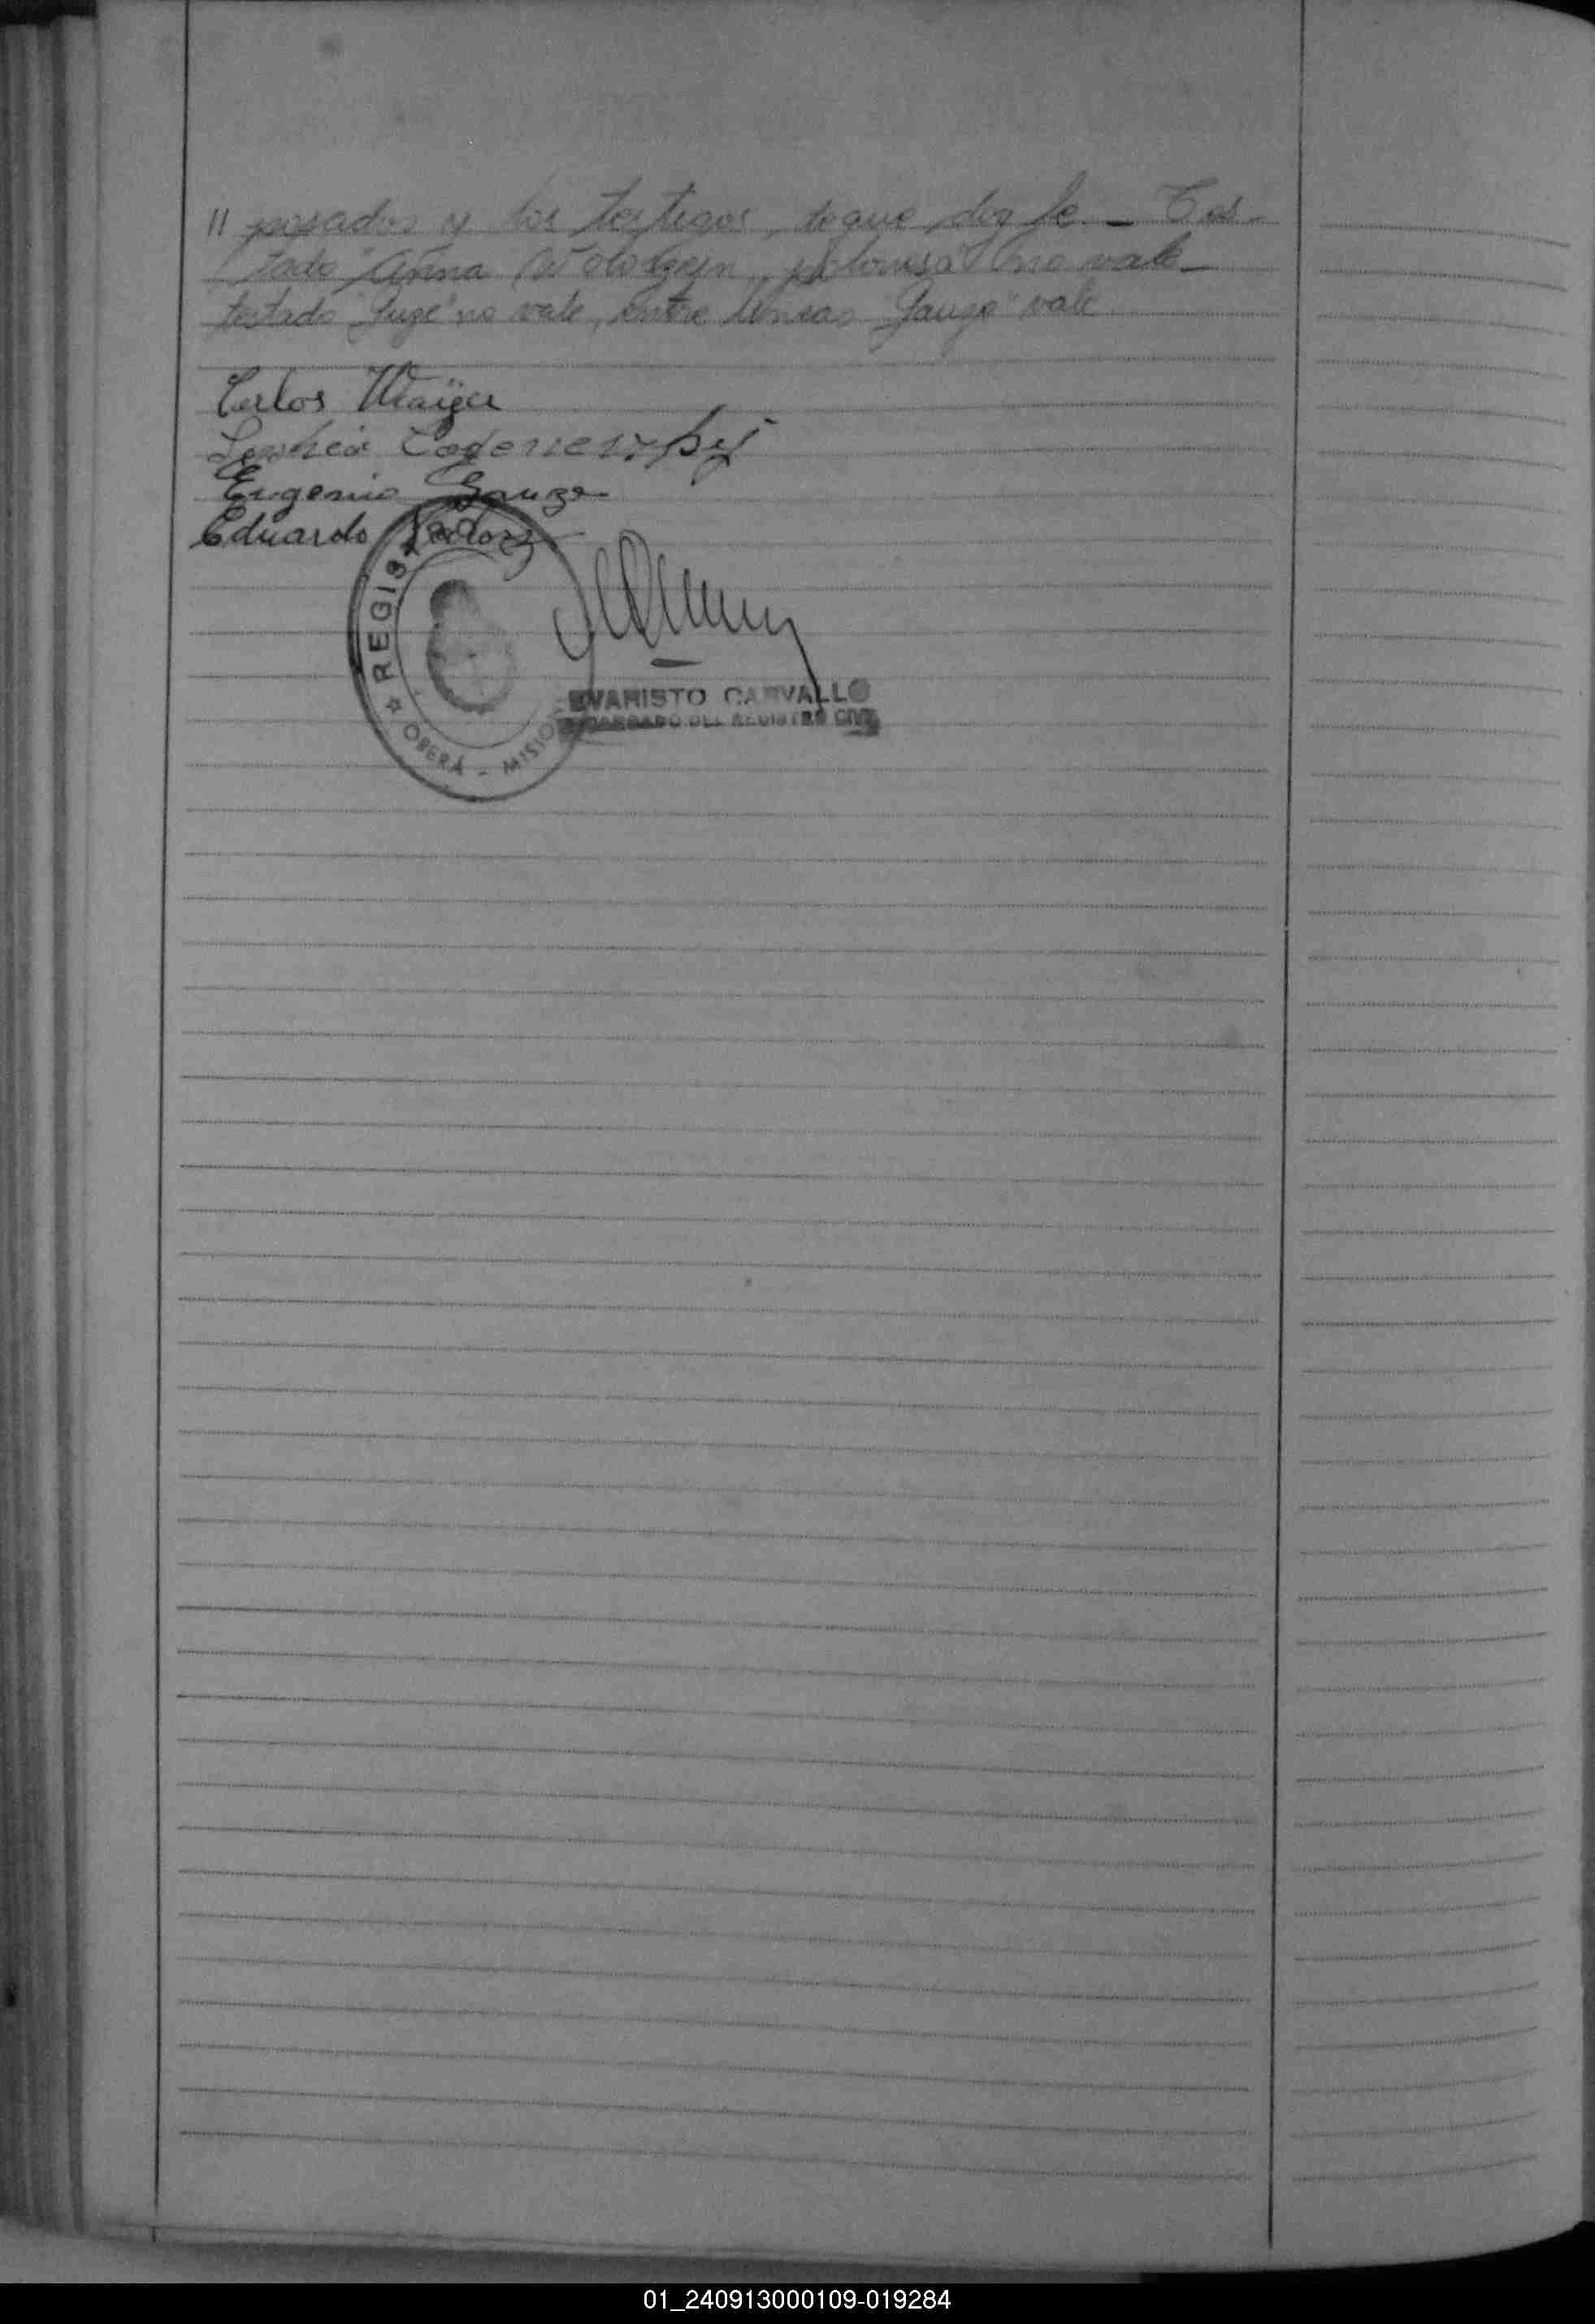 // posados y los testigos, de que doy fe. – Tes-
tado "Anna polonesa" no vale –
testado "Luze" no vale, entre lineas "Gauze" vale
Carlos
Eugenio Gauze
Eduardo
REGISTRO
OBERÁ - MISIONES
EVARISTO CARVALLO
ENCARGADO DEL REGISTRO CIVIL
01_240913000109-019284